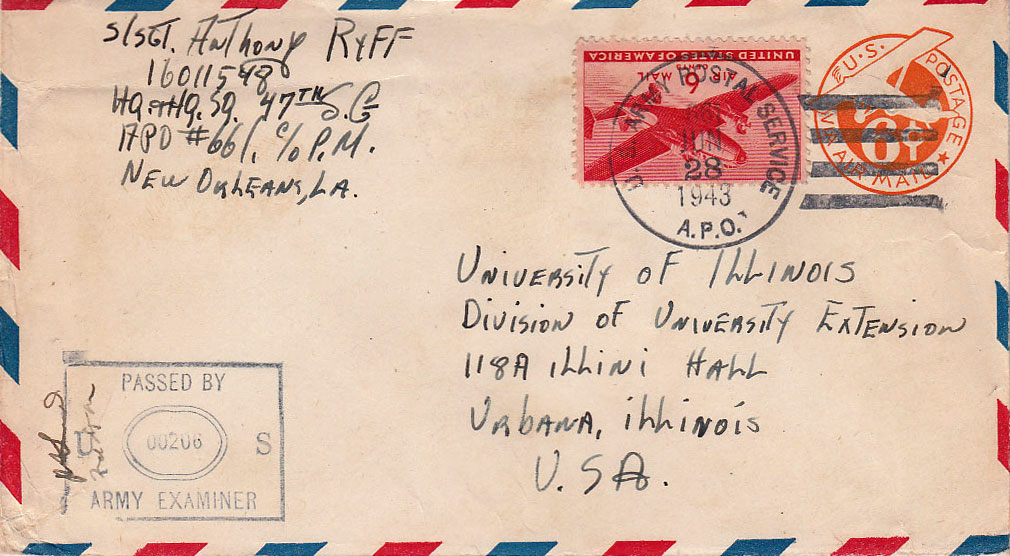 S/SGT. ANTHONY RYFF
16011548
HQ. & HQ. SQ. 47TH S.G
APO #661, C/O P.M.
NEW ORLEANS, LA.
UNITED STATES OF AMERICA
AIR MAIL
6 CENTS 6
U.S. ARMY POSTAL SERVICE
JUN
28
1943
A.P.O.
U.S. POSTAGE
6¢
VIA AIR MAIL
UNIVERSITY OF ILLINOIS
DIVISION OF UNIVERSITY EXTENSION
118A ILLINI HALL
URBANA, ILLINOIS
U.S.A.
PASSED BY
U 00206 S
ARMY EXAMINER